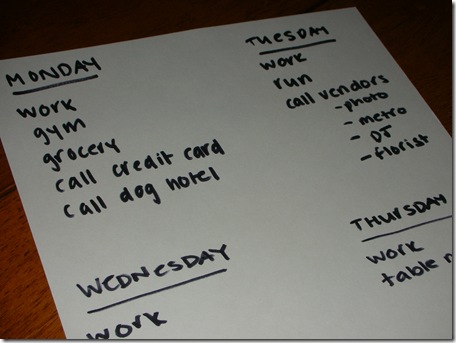 MONDAY
work
gym
grocery
call credit card
call dog hotel
TUESDAY
work
run
call vendors
-photo
- metro
- DJ
-florist
WEDNESDAY
work
THURSDAY
work
table